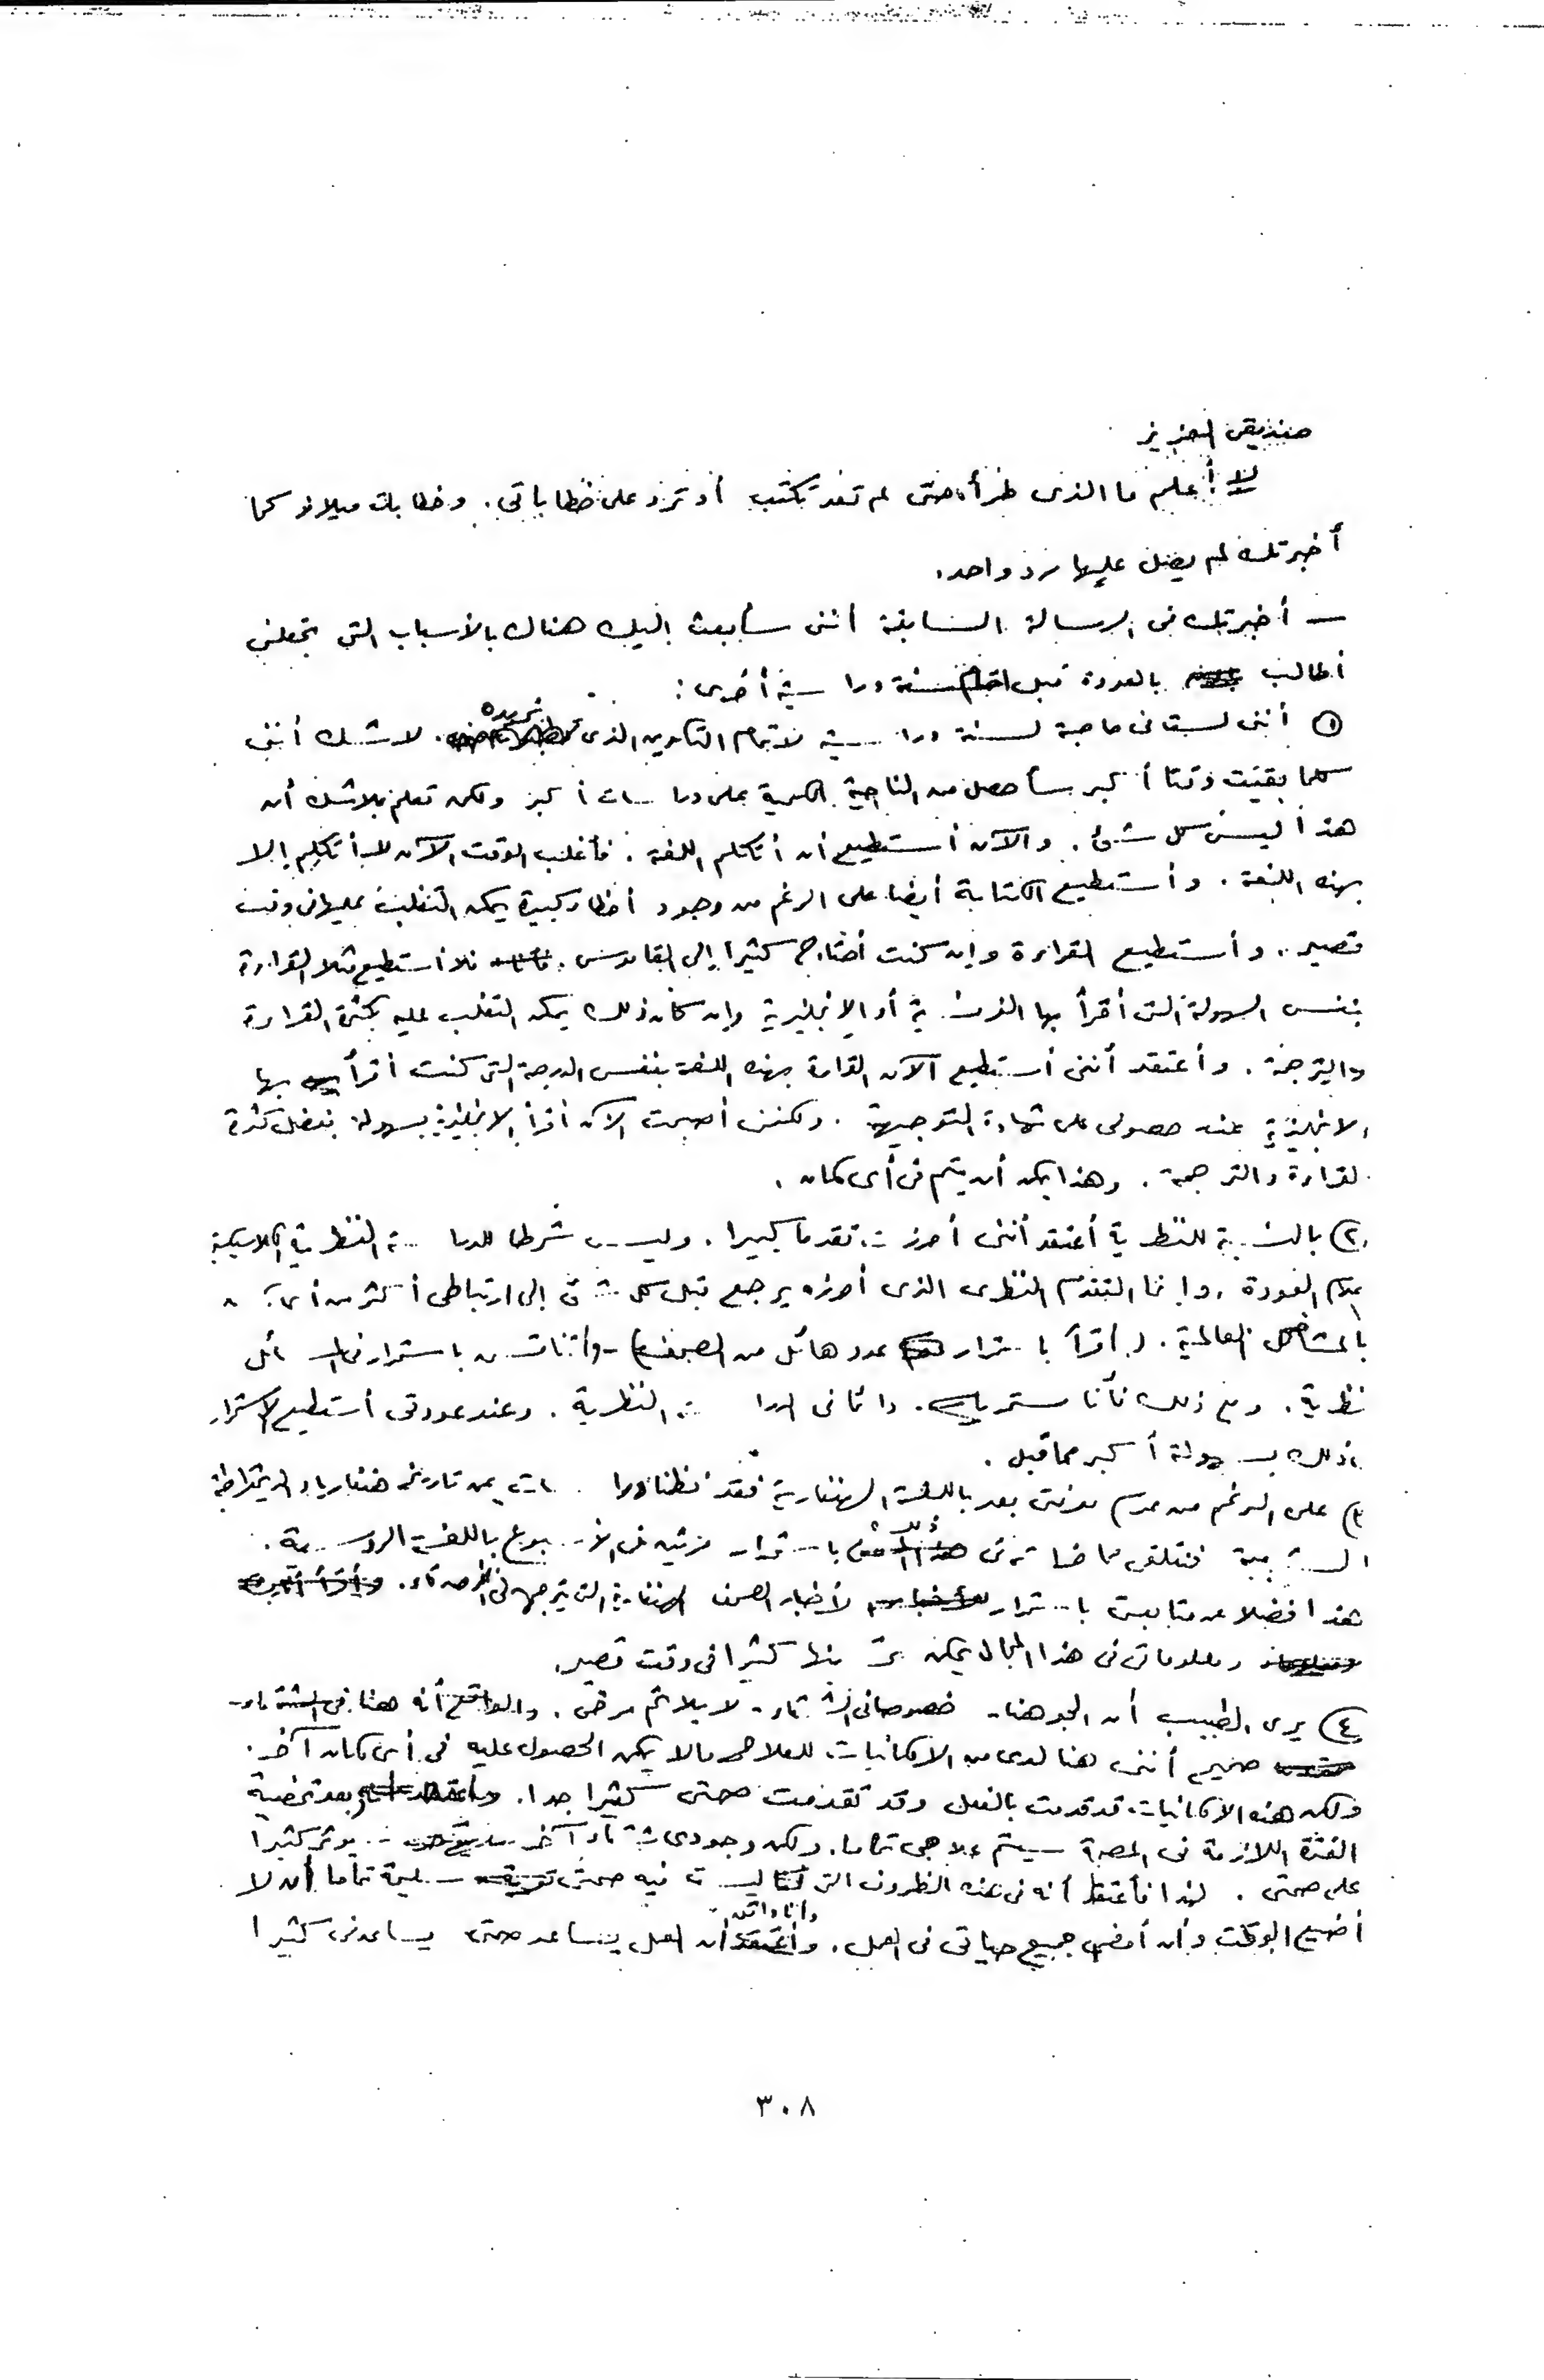 صديقى العزيز
لا أعلم ما الذى طرأ حتى لم تعد تكتب أو ترد على خطاباتى. وخطابات ميلاد كما
أخبرتك لم يصل عليها رد واحد.
ــ أخبرتك فى الرسالة السابقة أننى سأبعث إليك هناك بالأسباب التى تجعلنى
أطالب بالعودة قبل سنة دراسية أخرى:
١ أننى لست فى حاجة لسنة دراسية لاتمام التكوين الذى تريده. لا شك أننى
كلما بقيت وقتا أكبر سأحصل من الناحية الكمية على دراسات أكبر ولكن تعلم بلا شك أن
هذا ليس كل شئ. والآن أستطيع أن أتكلم اللغة. فأغلب الوقت الآن لا أتكلم إلا
بهذه اللغة. وأستطيع الكتابة أيضا على الرغم من وجود أخطاء كبيرة يمكن التغلب عليها فى وقت
قصير. وأستطيع القراءة وإن كنت أحتاج كثيرا إلى القاموس. فلا أستطيع مثلا القراءة
بنفس السهولة التى أقرأ بها الفرنسية أو الانجليزية وإن كان ذلك يمكن التغلب عليه بكثرة القراءة
والترجمة. وأعتقد أننى أستطيع الآن القراءة بهذه اللغة بنفس الدرجة التى كنت أقرأ بها
الانجليزية عند حصولى على شهادة التوجيهية. ولكننى أصبحت الآن أقرأ الانجليزية بسهولة بفضل كثرة
القراءة والترجمة. وهذا يمكن أن يتم فى أى مكان.
٢ بالنسبة للنظرية أعتقد أننى أحرزت تقدما كبيرا. وليس شرطا للدراسة النظرية الكلاسيكية
عدم العودة. وإنما التقدم النظرى الذى أحرزه يرجع قبل كل شئ إلى ارتباطى أكثر من أى
بالمشاكل العالمية. (أقرأ باستمرار عدد هائل من الصحف) وأتناقش باستمرار فى المسائل
نظرية. ومع ذلك فأنا مستمر دائما فى الدراسة النظرية. وعند عودتى أستطيع الاستمرار
فى ذلك بسهولة أكبر مما قبل.
٣) على الرغم من عدم معرفتى بعد باللغة الهنغارية فقد نظمنا دراسات عن تاريخ هنغاريا والديمقراطية
الشعبية فنتلقى محاضرة فى ذلك باستمرار مرتين فى الأسبوع باللغة الروسية.
هذا فضلا عن متابعتى باستمرار لأخبار الصحف الهنغارية التى يترجمها لى الأصدقاء.
ومعلوماتى فى هذا المجال يمكن كثيرا فى وقت قصير.
٤ يرى الطبيب أن الجو هنا - خصوصا فى الشتاء - لا يلائم مرضى. والواقع أنه هنا فى الشتاء -
صحيح أننى هنا لدى من الامكانيات للعلاج ما لا يمكن الحصول عليه فى أى مكان آخر.
ولكن هذه الامكانيات قد قدمت بالفعل وقد تقدمت صحتى كثيرا جدا. وبعد تمضية
الفترة اللازمة فى المصحة سيتم علاجى تماما. ولكن وجودى شتاء آخر يؤثر كثيرا
على صحتى. لهذا فأعتقد أنه فى هذه الظروف التى ليست فيه صحتى سليمة تماما أن لا
أضيع الوقت وأن أمضى جميع حياتى فى العمل. وأنا واثق أن العمل يساعد صحتى يساعدنى كثيرا
٣٠٨